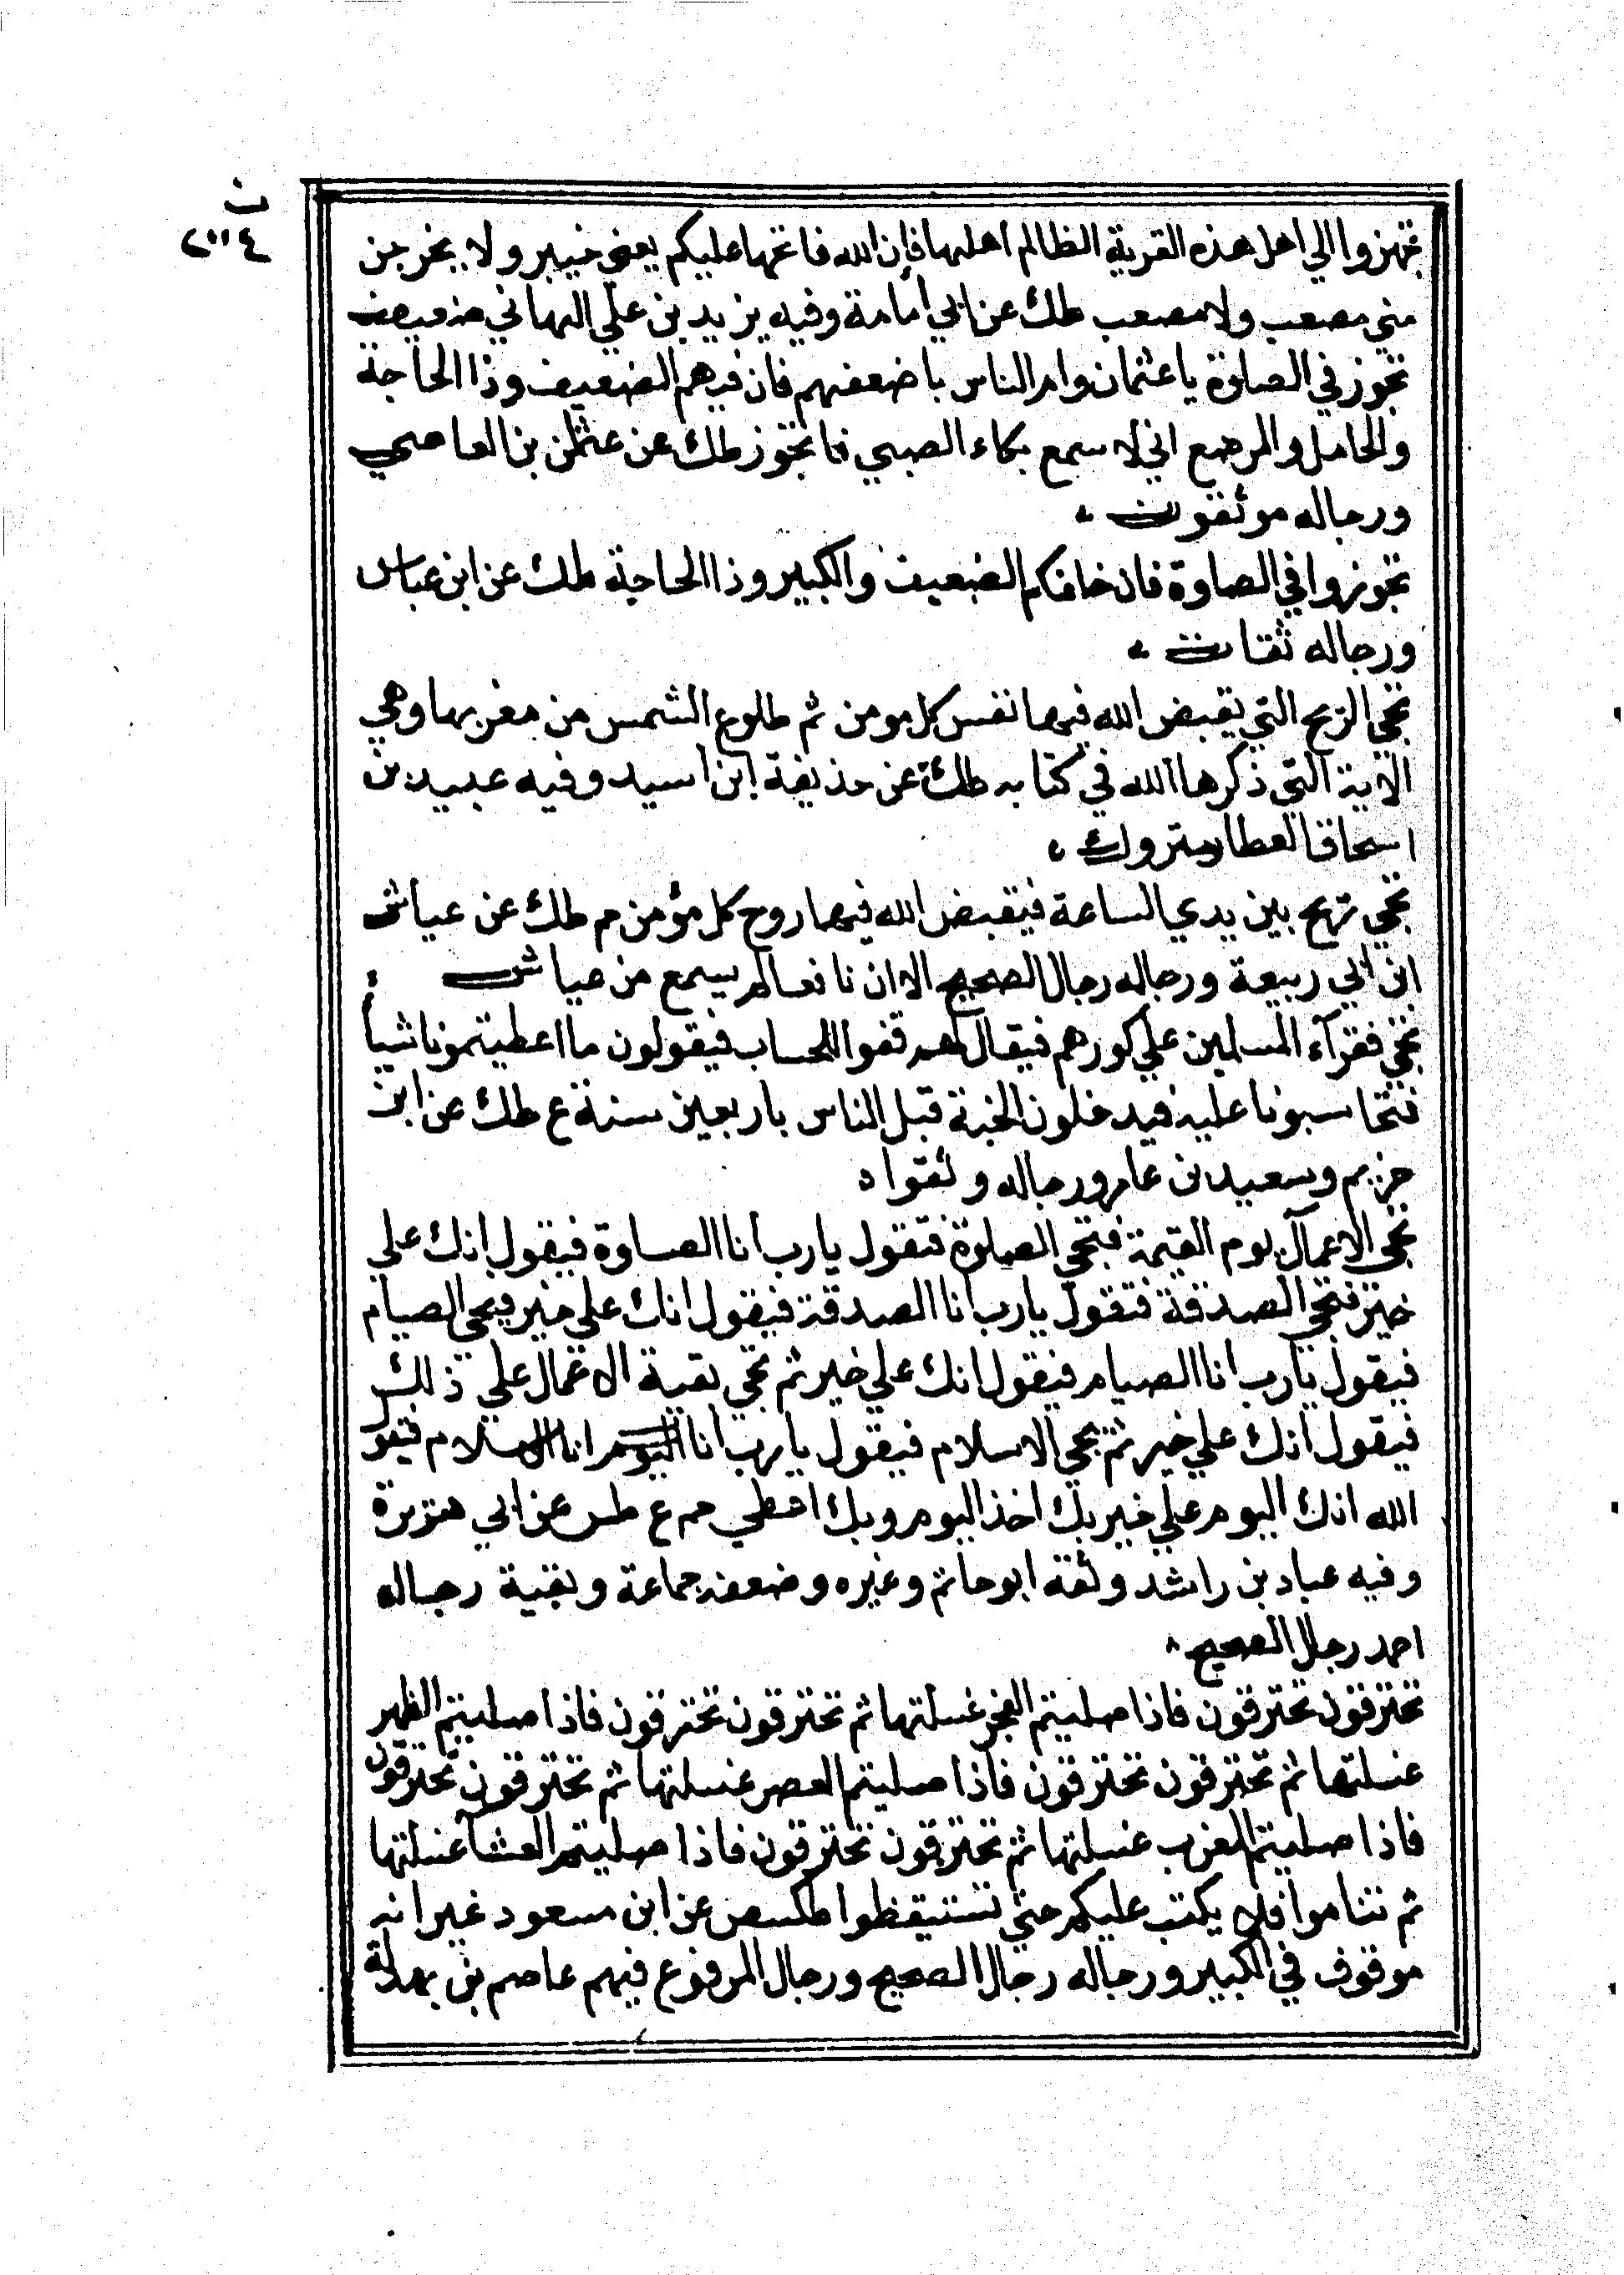 ن
٢١١٤
تجهزوا الي اهل هذه القرية الظالم اهلها فإن الله فاتحها عليكم يعني خيبر ولا يخرجن
مني مصعب ولا مصعب طك عن ابي أمامة وفيه يزيد بن علي الهاني ضعيف
تجوز في الصلوة يا عثمان وامر الناس باضعفهم فان فيهم الضعيف وذا الحاجة
والحامل والمرضع اني لاسمع بكاء الصبي فاتجوز طك عن عثمن بن العاصي
ورجاله موثقون
تجوزوا في الصلوة فان خلفكم الضعيف والكبير وذا الحاجة طك عن ابن عباس
ورجاله ثقات
تجي الريح التي يقبض الله فيها نفس كل مومن ثم طلوع الشمس من مغربها وهي
الآية التي ذكرها الله في كتابه طك عن حذيفة ابن اسيد وفيه عبيد بن
اسحاق العطار متروك
تجي ريح بين يدي الساعة فيقبض الله فيها روح كل مؤمن م طك عن عياش
ابن ابي ربيعة ورجاله رجال الصحيح الا ان نافعا لم يسمع من عياش
تجي فقرآء المسلمين علي كورهم فيقال لهم قفوا للحساب فيقولون ما اعطيتمونا شيأ
فتحاسبونا عليه فيدخلون الجنة قبل الناس باربعين سنة ع طك عن ابن
جزيم وسعيد بن عامر ورجاله وثقوا
تجي الاعمال يوم القيمة فتجي الصلوة فتقول يارب انا الصلوة فيقول انك علي
خير فتجي الصدقة فتقول يارب انا الصدقة فيقول انك علي خير فيجي الصيام
فيقول يارب انا الصيام فيقول انك علي خير ثم تجي بقية الاعمال علي ذلك
فيقول انك علي خير ثم يجي الاسلام فيقول يارب انا اليوم انا الاسلام فيقول
الله انك اليوم علي خير بك اخذ اليوم وبك اعطي حم ع طس عن ابي هريرة
وفيه عباد بن راشد وثقه ابو حاتم وغيره وضعفه جماعة وبقية رجاله
احمد رجال الصحيح
تحترقون تحترقون فاذا صليتم الفجر غسلتها ثم تحترقون تحترقون فاذا صليتم الظهر
غسلتها ثم تحترقون تحترقون فاذا صليتم العصر غسلتها ثم تحترقون تحترقون
فاذا صليتم المغرب غسلتها ثم تحترقون تحترقون فاذا صليتم العشآ غسلتها
ثم تناموا فلا يكتب عليكم حتي تستيقظوا طكسص عن ابن مسعود غير انه
موقوف في الكبير ورجاله رجال الصحيح ورجال المرفوع فيهم عاصم بن بهدلة